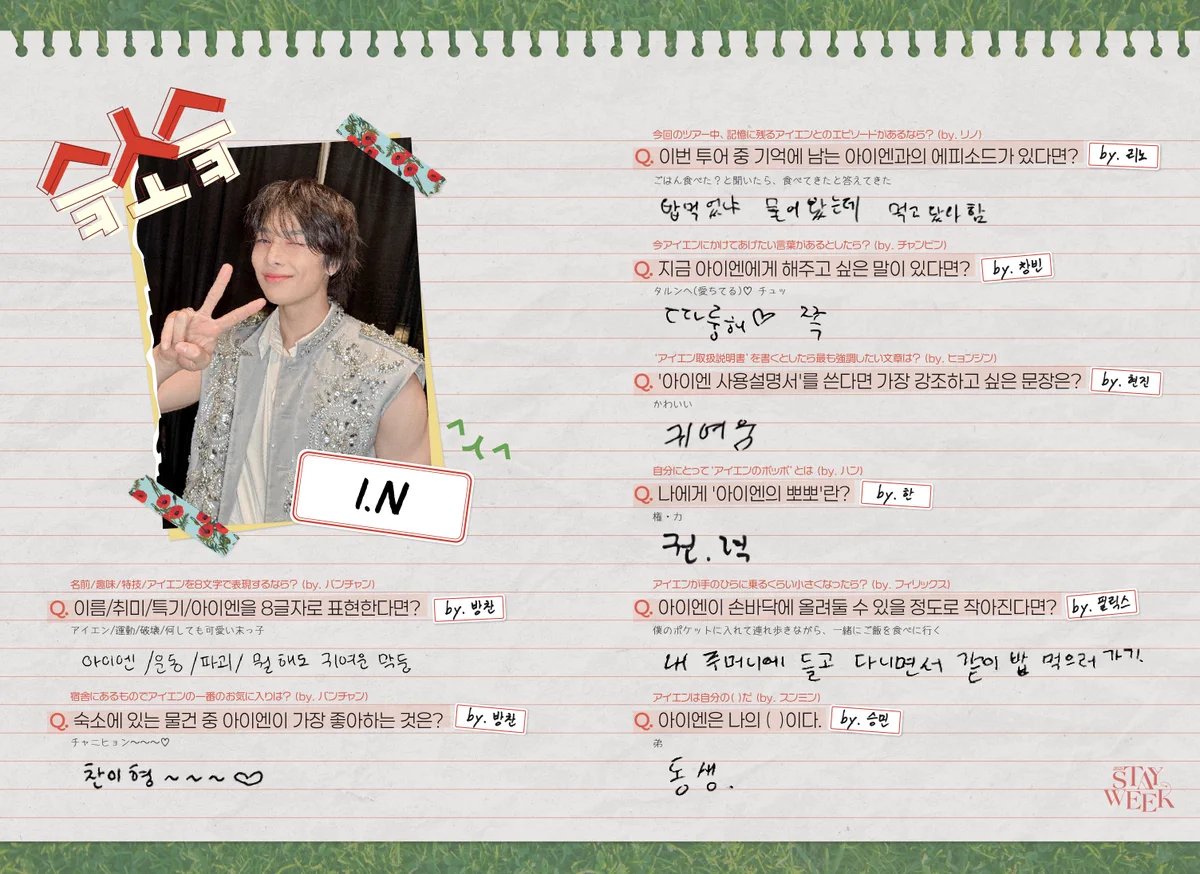 I.N
ㅅㅅㅅ
名前/趣味/特技/アイエンを8文字で表現するなら? (by. バンチャン)
Q. 이름/취미/특기/아이엔을 8글자로 표현한다면? by. 방찬
アイエン/運動/破壊/何しても可愛い末っ子
아이엔 /운동 /파괴/ 뭘 해도 귀여운 막둥
宿舎にあるものでアイエンの一番のお気に入りは? (by. バンチャン)
Q. 숙소에 있는 물건 중 아이엔이 가장 좋아하는 것은? by. 방찬
チャニヒョン~~~♡
찬이 형 ~ ~ ~ ♡
今回のツアー中、記憶に残るアイエンとのエピソードがあるなら? (by. リノ)
Q. 이번 투어 중 기억에 남는 아이엔과의 에피소드가 있다면? by. 리노
ごはん食べた?と聞いたら、食べてきたと答えてきた
밥 먹었냐 물어봤는데 먹고 왔다 함
今アイエンにかけてあげたい言葉があるとしたら? (by. チャンビン)
Q. 지금 아이엔에게 해주고 싶은 말이 있다면? by. 창빈
タルンヘ(愛ちてる)♡ チュッ
따룽해♡ 쪽
'アイエン取扱説明書'を書くとしたら最も強調したい文章は? (by. ヒョンジン)
Q. '아이엔 사용설명서'를 쓴다면 가장 강조하고 싶은 문장은? by. 현진
かわいい
귀여움
自分にとって'アイエンのポッポ'とは (by. ハン)
Q. 나에게 '아이엔의 뽀뽀'란? by. 한
権・力
권.력
アイエンが手のひらに乗るくらい小さくなったら? (by. フィリックス)
Q. 아이엔이 손바닥에 올려둘 수 있을 정도로 작아진다면? by. 필릭스
僕のポケットに入れて連れ歩きながら、一緒にご飯を食べに行く
내 주머니에 들고 다니면서 같이 밥 먹으러 가기.
アイエンは自分の( )だ (by. スンミン)
Q. 아이엔은 나의 ( )이다. by. 승민
弟
동생.
STAY
WEEK